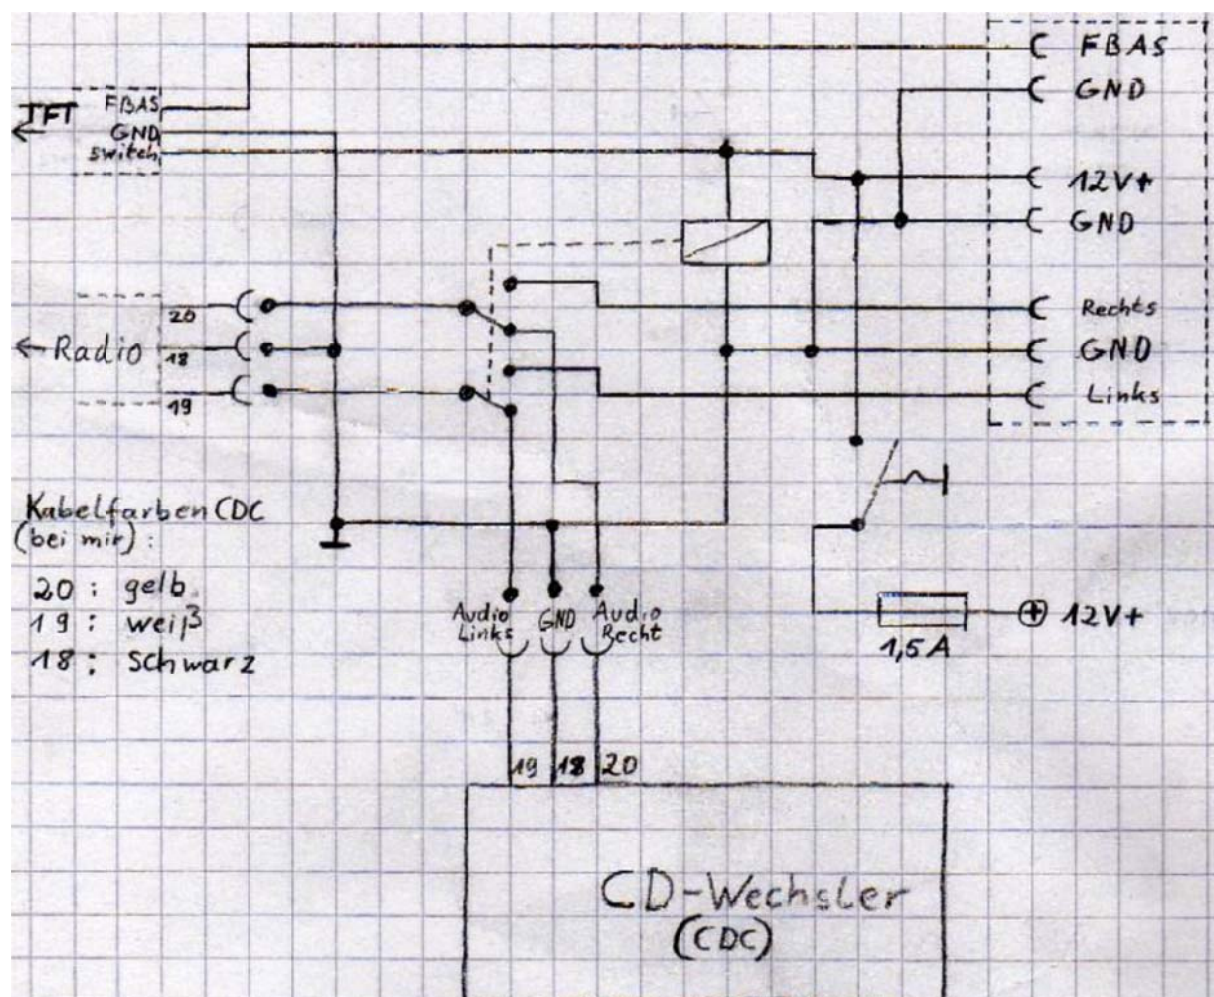 FBAS
GND
12V+
GND
Rechts
GND
Links
TFT
FBAS
GND
switch
20
Radio
18
19
Kabelfarben CDC
(bei mir) :
20 : gelb
19 : weiß
18 : Schwarz
Audio
Links
GND
Audio
Recht
12V+
1,5A
19
18
20
CD-Wechsler
(CDC)